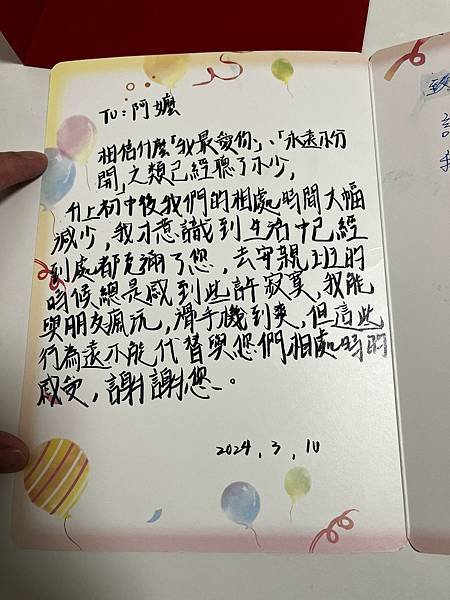 TO：阿嬤
相信什麼「我最愛你」、「永遠不分
開」之類已經聽了不少，
升上初中後我們的相處時間大幅
減少，我才意識到生活中已經
到處都充滿了您，去安親班的
時候總是感到些許寂寞，我能
與朋友瘋玩，滑手機到爽，但這些
行為遠不能代替與您們相處時的
感受，謝謝您。
2024．3．10